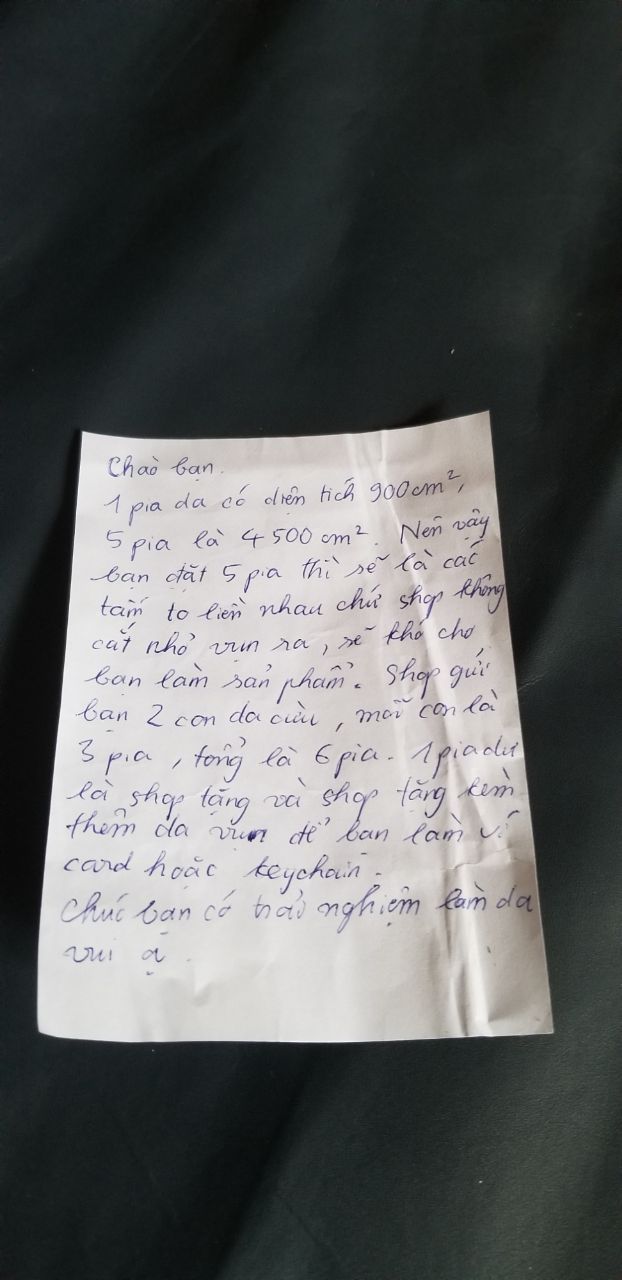 Chào bạn.
1 pia da có diện tích 900cm²,
5 pia là 4500 cm². Nên vậy
bạn đặt 5 pia thì sẽ là các
tấm to liền nhau chứ shop không
cắt nhỏ vụn ra, sẽ khó cho
bạn làm sản phẩm. Shop gửi
bạn 2 con da cừu, mỗi con là
3 pia, tổng là 6 pia. 1 pia dư
là shop tặng và shop tặng kèm
thêm da vụn để bạn làm ví
card hoặc keychain.
Chúc bạn có trải nghiệm làm da
vui ạ.